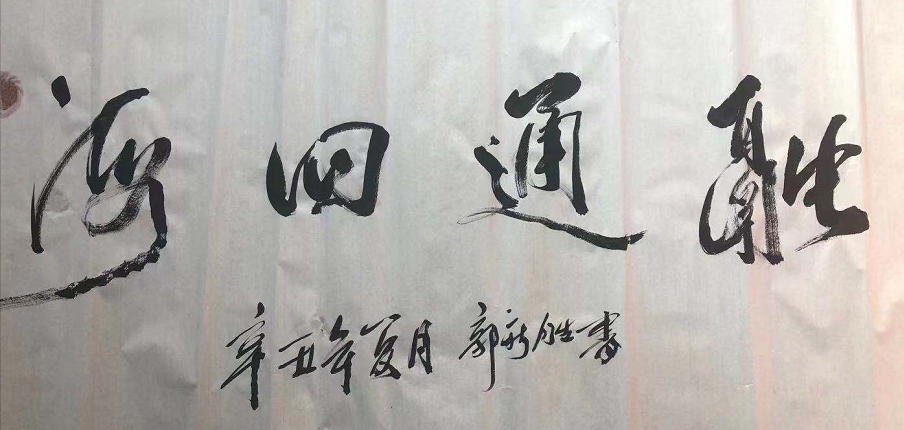 融通四海
辛丑年夏月 郭新胜書